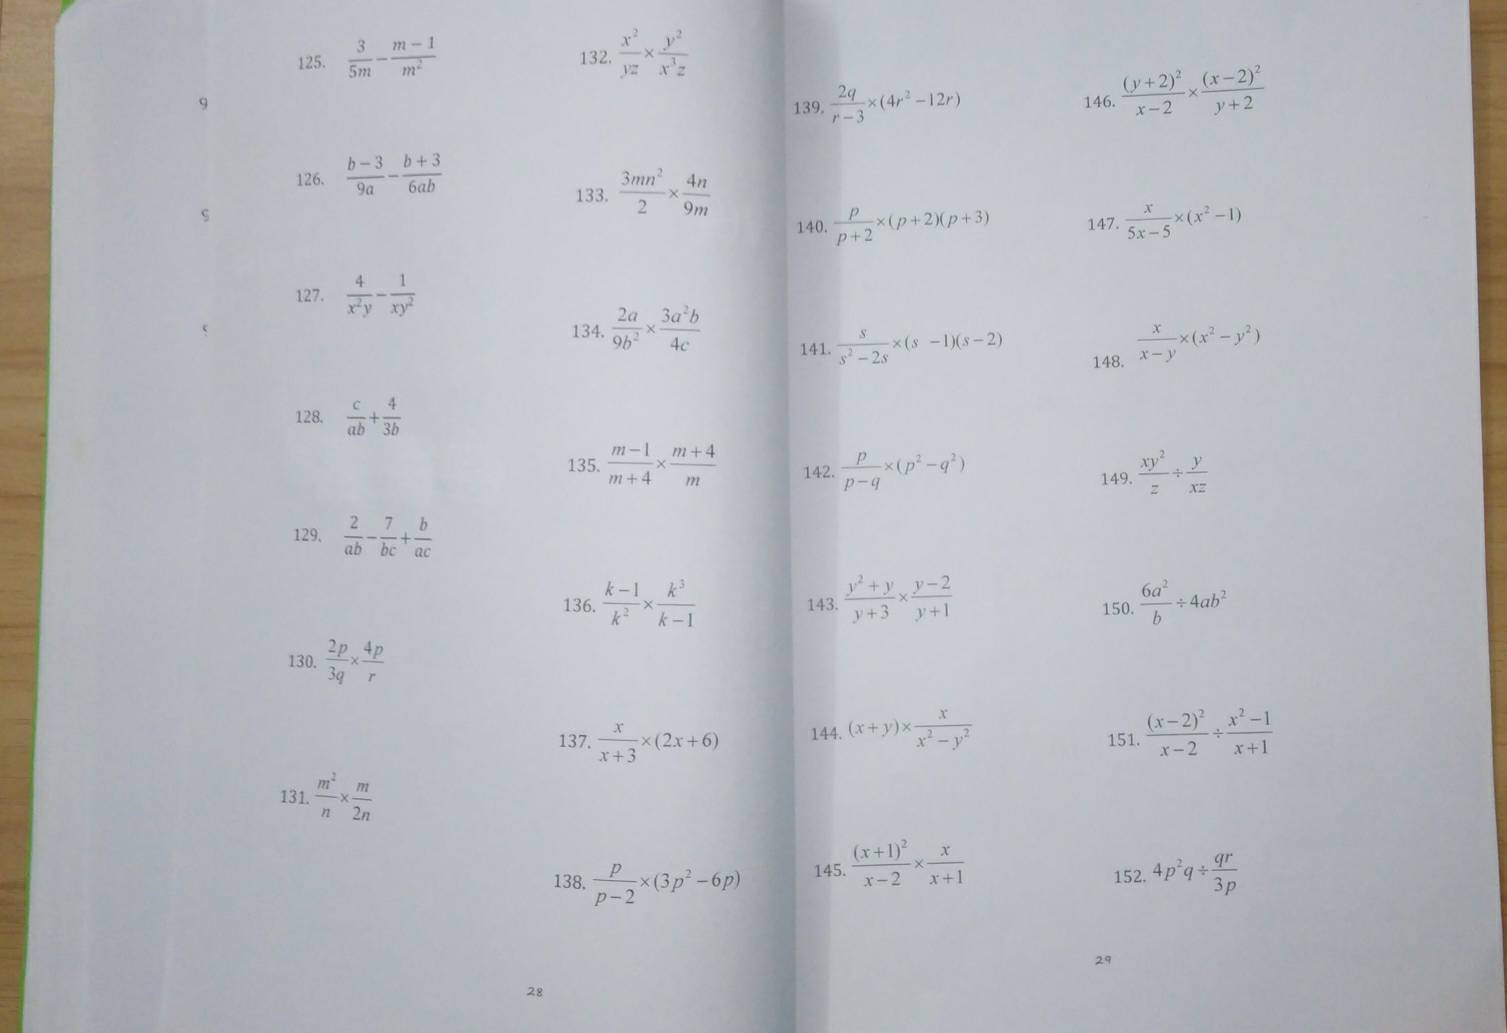 125. 3/5m − (m − 1)/m²
126. (b − 3)/9a − (b + 3)/6ab
127. 4/x²y − 1/xy²
128. c/ab + 4/3b
129. 2/ab − 7/bc + b/ac
130. 2p/3q × 4p/r
131. m²/n × m/2n
132. x²/yz × y²/x³z
133. 3mn²/2 × 4n/9m
134. 2a/9b² × 3a²b/4c
135. (m − 1)/(m + 4) × (m + 4)/m
136. (k − 1)/k² × k³/(k − 1)
137. x/(x + 3) × (2x + 6)
138. p/(p − 2) × (3p² − 6p)
28
139. 2q/(r − 3) × (4r² − 12r)
140. p/(p + 2) × (p + 2)(p + 3)
141. s/(s² − 2s) × (s − 1)(s − 2)
142. p/(p − q) × (p² − q²)
143. (y² + y)/(y + 3) × (y − 2)/(y + 1)
144. (x + y) × x/(x² − y²)
145. (x + 1)²/(x − 2) × x/(x + 1)
146. (y + 2)²/(x − 2) × (x − 2)²/(y + 2)
147. x/(5x − 5) × (x² − 1)
148. x/(x − y) × (x² − y²)
149. xy²/z ÷ y/xz
150. 6a²/b ÷ 4ab²
151. (x − 2)²/(x − 2) ÷ (x² − 1)/(x + 1)
152. 4p²q ÷ qr/3p
29